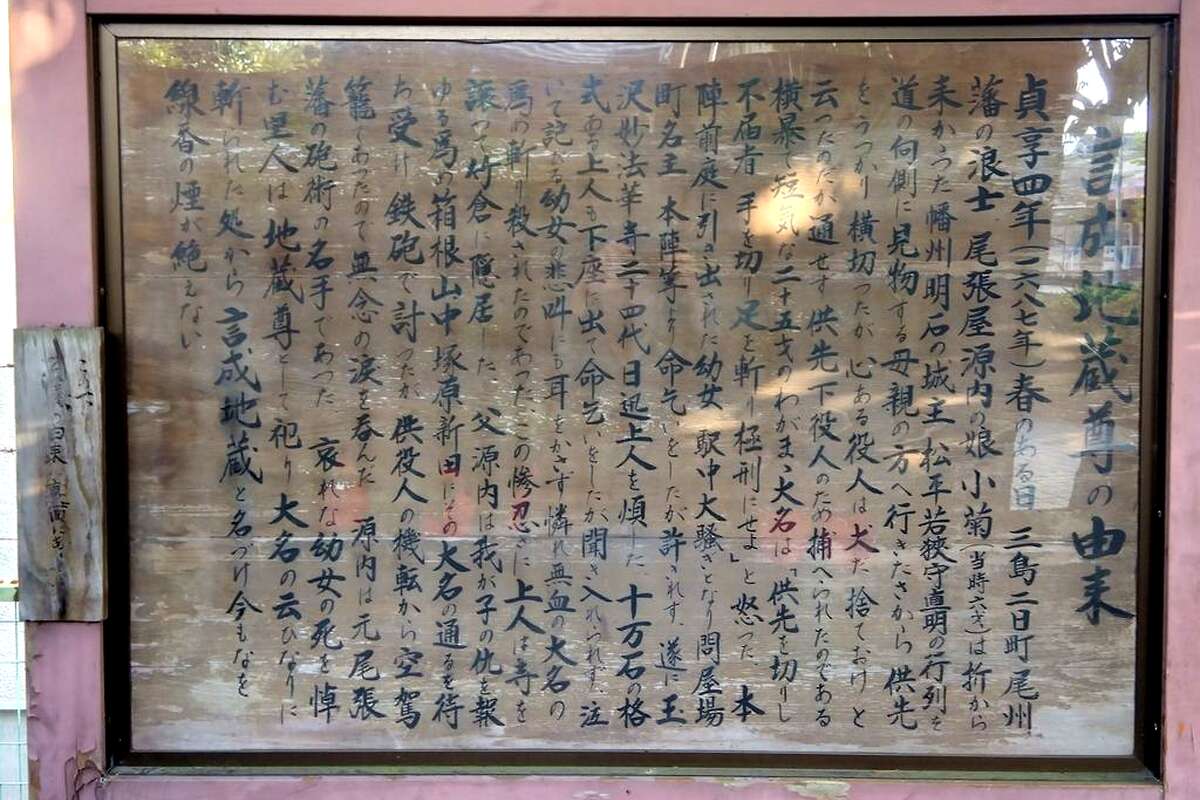 言成地蔵尊の由来
貞享四年(一六八七年)春のある日 三島二日町尾州
藩の浪士 尾張屋源内の娘小菊(当時六才)は折から
来かゝった幡州明石の城主 松平若狭守直明の行列を
道の向側に見物する母親の方へ行きたさから 供先
をうっかり横切ったが 心ある役人は犬だ捨ておけ と
云ったのだが通せず 供先下役人のため捕へられたのである
横暴で短気な二十五才のわがまゝ大名は「供先を切りし
不届者 手を切り足を斬り極刑にせよ」と怒った 本
陣前庭に引き出された幼女 駅中大騒ぎとなり問屋場
町名主 本陣等より命乞いをしたが許されず、遂に玉
沢妙法華寺二十四代 日迅上人を煩した、十万石の格
式ある上人も下座に出て命乞いをしたが聞き入れられず、泣
いて詫る幼女の悲叫にも耳をかさず憐れ無血の大名の
為め斬り殺されたのであった、この惨忍さに 上人は寺を
譲って竹倉に隠居した 父源内は我が子の仇を報
ゆる為め箱根山中塚原新田にその大名の通るを待
ち受け 鉄砲で討ったが 供役人の機転から空駕
籠であったので無念の涙を呑んだ 源内は元尾張
藩の砲術の名手であった 哀れな幼女の死を悼
む里人は 地蔵尊として祀り 大名の云ひなりに
斬られた処から 言成地蔵と名づけ今もなを
線香の煙が絶えない